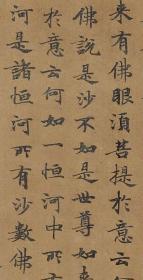 来有佛眼湏菩提於意云何
佛說是沙不如是世尊如來
於意云何如一恒河中所有
河是諸恒河所有沙數佛